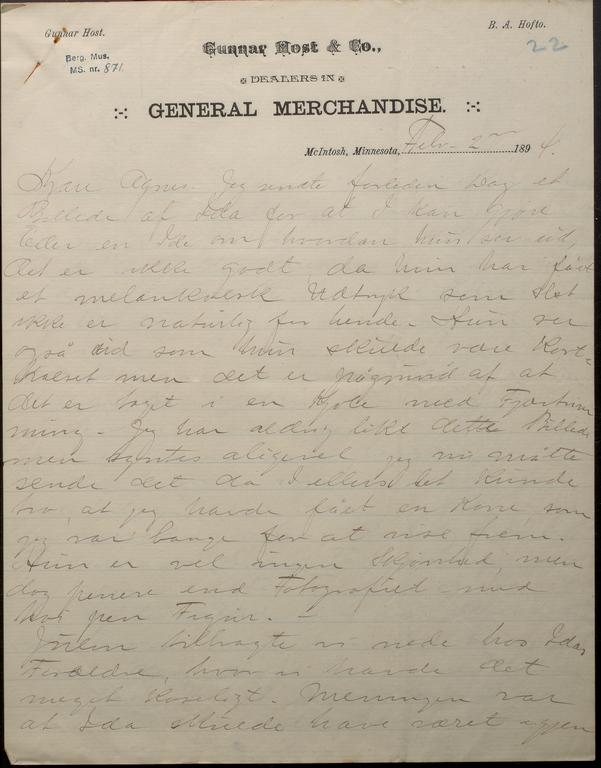 Gunnar Host.
B. A. Hofto.
22
Berg. Mus.
MS. nr. 871
Gunnar Host & Co.,
DEALERS IN
GENERAL MERCHANDISE.
McIntosh, Minnesota, Febr. 2 189 4.
Kjære Agnes. Jeg sendte forleden Dag et
Billede af Ida for at I kan gjøre
Eder en Ide om hvordan hun ser ud,
det er ikke godt, da hun har fået
et melankolsk Udtryk som slet
ikke er naturlig for hende. Hun ser
også ud som hun skulde være Kort-
halset men det er på grund af at
det er taget i en Kjole med
Jeg har aldrig likt dette Billede
men syntes aligevel jeg nu måtte
sende det da I ellers let kunde
tro, at jeg havde fået en Kone som
jeg var bange for at vise frem.
Hun er vel ingen Skjønhed, men
dog penere end Fotografiet med
pen Figur. -
Julen tilbragte vi nede hos Idas
Forældre, hvor vi havde det
meget koseligt. Meningen var
at Ida skulde have været igjen